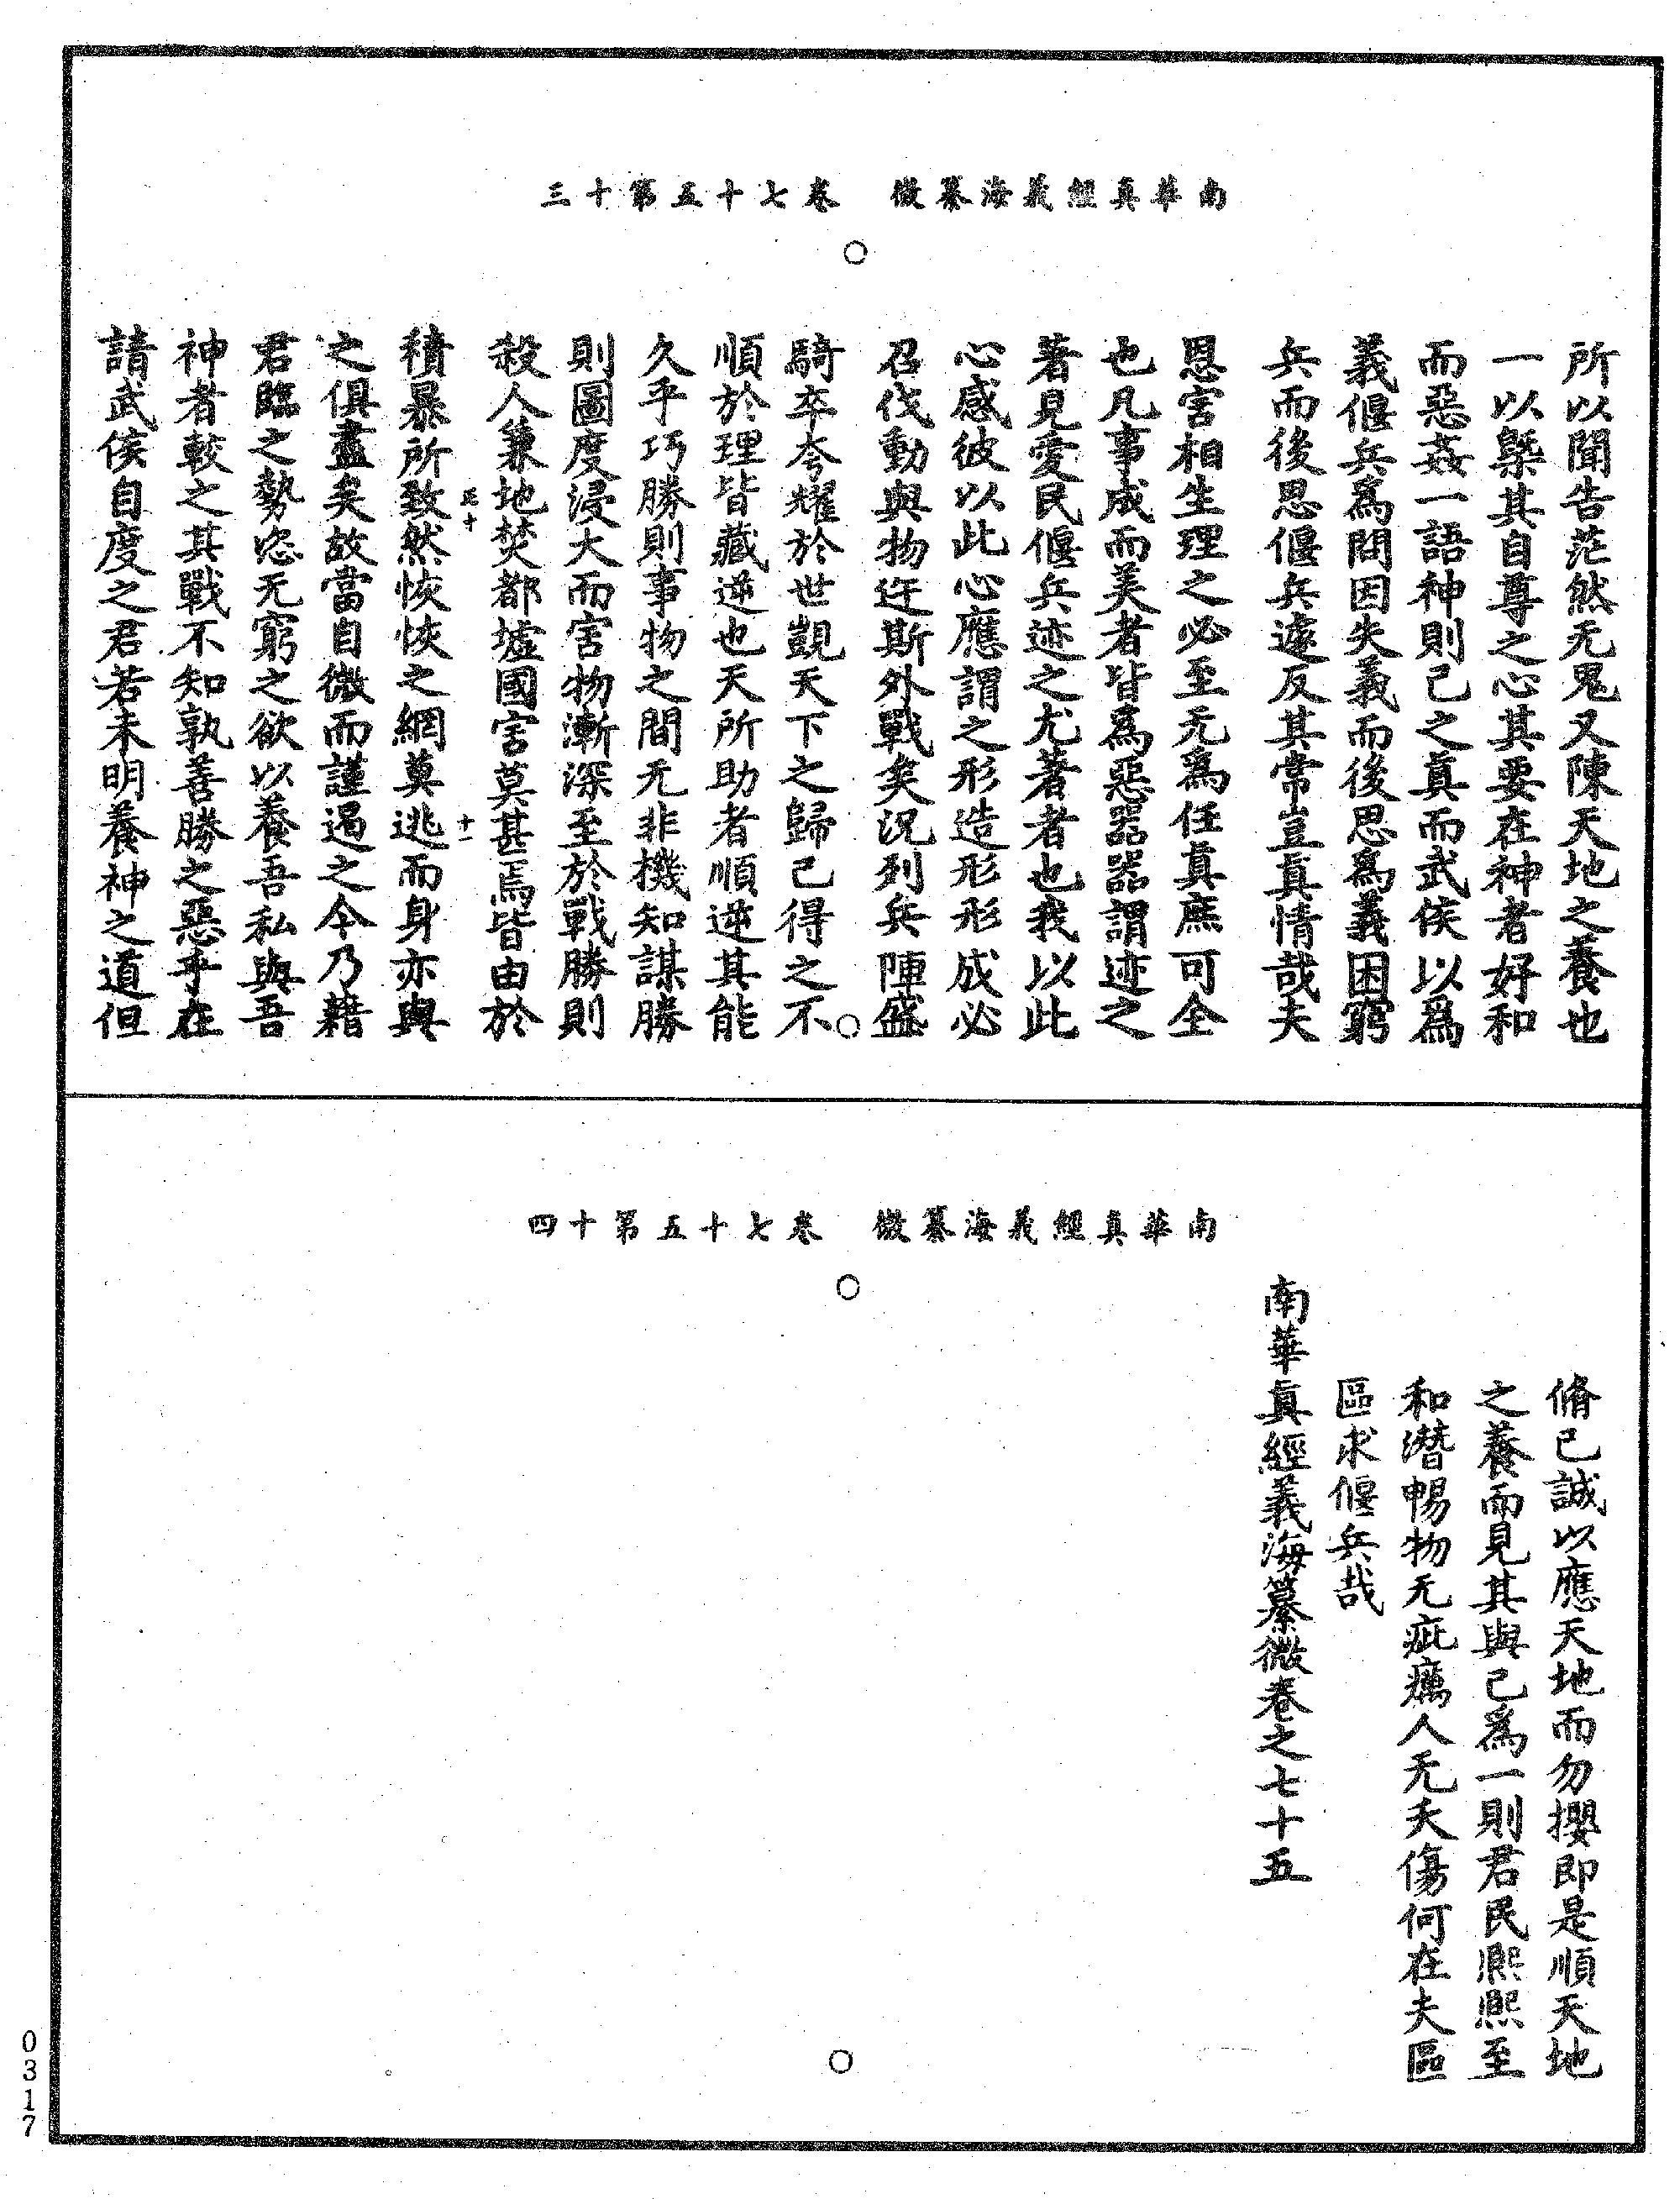 南華真經義海纂微　卷七十五第十三
所以聞告茫然无鬼又陳天地之養也
一以槩其自尊之心其要在神者好和
而惡姦一語神則己之真而武侯以爲
義偃兵爲問因失義而後思爲義困窮
兵而後思偃兵遠反其常豈真情哉夫
恩害相生理之必至无爲任真庶可全
也凡事成而美者皆爲惡器器謂迹之
著見愛民偃兵迹之尤著者也我以此
心感彼以此心應謂之形造形形成必
召伐動與物迕斯外戰矣況列兵陣盛
騎卒夸耀於世覬天下之歸己得之不
順於理皆藏逆也天所助者順逆其能
久乎巧勝則事物之間无非機知謀勝
則圖度浸大而害物漸深至於戰勝則
殺人兼地焚都墟國害莫甚焉皆由於
積暴所致然恢恢之網莫逃而身亦與
之俱盡矣故當自微而謹遏之今乃藉
君臨之勢恣无窮之欲以養吾私與吾
神者較之其戰不知孰善勝之惡乎在
請武侯自度之君若未明養神之道但
南華真經義海纂微　卷七十五第十四
脩己誠以應天地而勿攖即是順天地
之養而見其與己爲一則君民熙熙至
和潛暢物无疵癘人无夭傷何在夫區
區求偃兵哉
南華真經義海纂微卷之七十五
0317